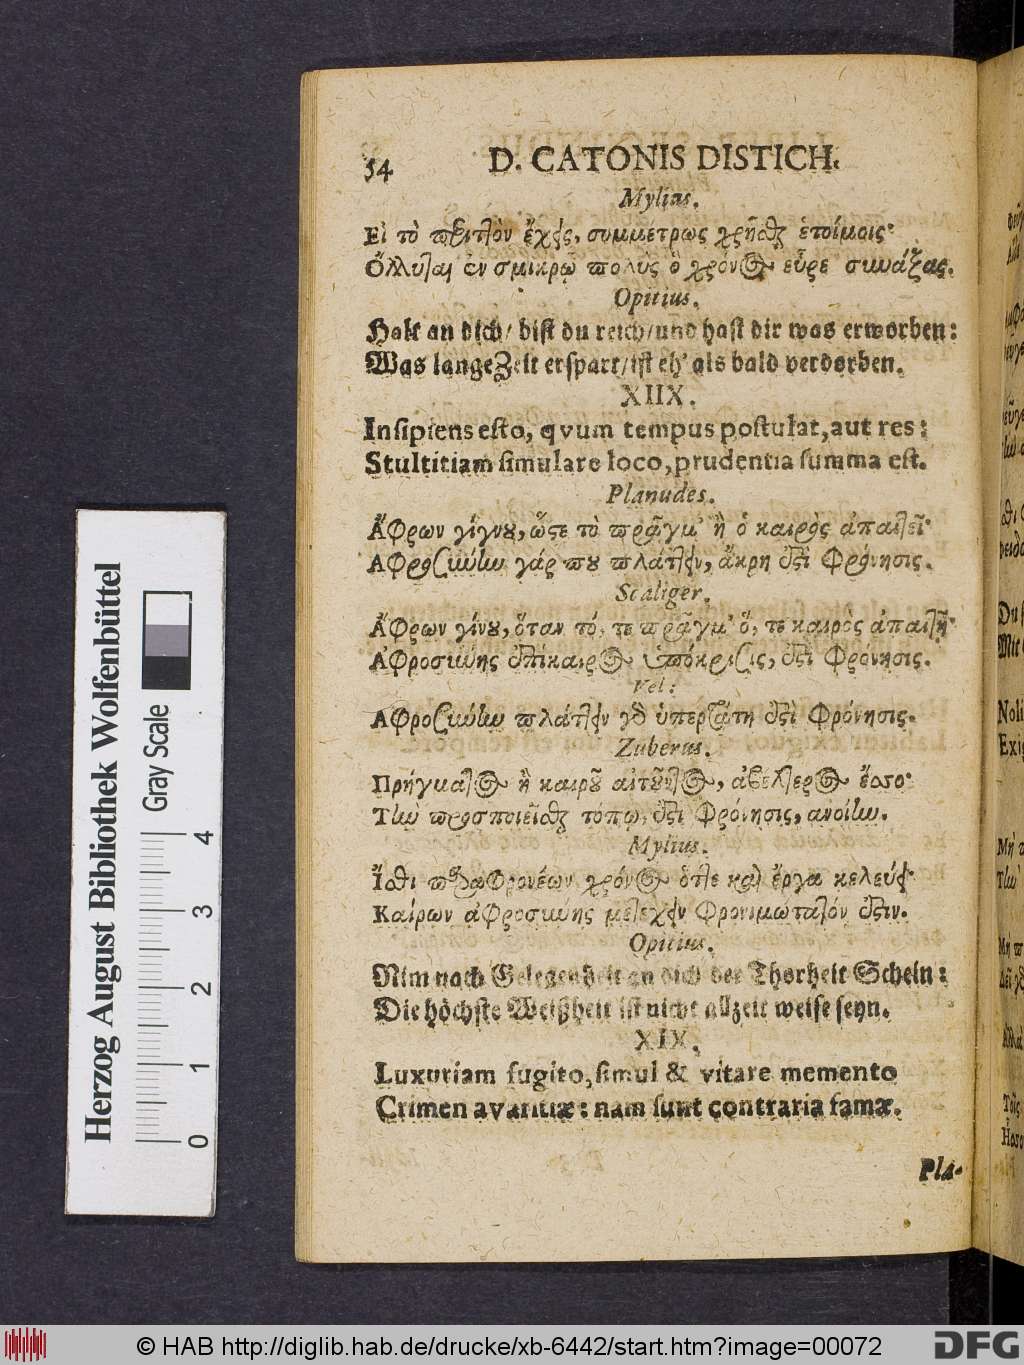 54 D. CATONIS DISTICH.
Mylius.
Εἰ τὸ περιττὸν ἔχεις, συμμέτρως χρῆσθαι ἑτοίμοις·
Ὄλλυται ἐν σμικρῷ πολὺς ὁ χρόνος εὗρε συνάξας.
Opitius.
Halt an dich/ bist du reich/und hast dir was erworben:
Was lange Zeit erspart/ist eh' als bald verdorben.
XIIX.
Insipiens esto, qvum tempus postulat, aut res:
Stultitiam simulare loco, prudentia summa est.
Planudes.
Ἄφρων γίγνου, ὥστε τὸ πρᾶγμ' ἢ ὁ καιρὸς ἀπαιτεῖ·
Αφροσύνην γάρ που πλάττειν, ἄκρη ἐστὶ Φρόνησις.
Scaliger.
Ἄφρων γίνου, ὅταν τό, τε πρᾶγμ' ὅ, τε καιρὸς ἀπαιτῇ·
Ἀφροσύνης ἐπίκαιρος ὑπόκρισις, ἐστὶ Φρόνησις.
Vel:
Αφροσύνην πλάττειν γὸ ὑπερτάτη ἐστὶ Φρόνησις.
Zuberus.
Πρήγματος ἢ καιροῦ αἰτοῦντος, ἀβέλτερος ἔσσο·
Τὴν προσποιεῖσθαι τόπῳ, ἐστὶ Φρόνησις, ανοίην.
Mylius.
Ἴσθι παραφρονέων χρόνος ὁτὲ καὶ ἔργα κελεύει·
Καίρων ἀφροσύνης μετέχειν Φρονιμώτατόν ἐστιν.
Opitius.
Nim nach Gelegenheit an dich der Thorheit Schein:
Die höchste Weißheit ist nicht allzeit weise seyn.
XIX.
Luxuriam fugito, simul & vitare memento
Crimen avaritiæ: nam sunt contraria famæ.
Pla-
Herzog August Bibliothek Wolfenbüttel
Gray Scale
0 1 2 3 4
© HAB http://diglib.hab.de/drucke/xb-6442/start.htm?image=00072
DFG